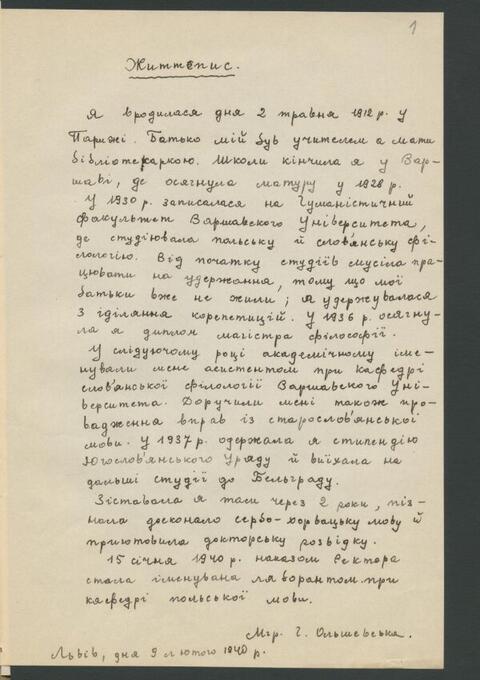 1
Життєпис.
Я вродилася дня 2 травня 1912 р. у
Парижі. Батько мій був учителем а мати
бібліотекаркою. Школи кінчила я у Вар-
шаві, де осягнула матуру у 1928 р.
У 1930 р. записалася на Гуманістичний
факультет Варшавского Університета,
де студіювала польську й слов'янську фі-
лологію. Від початку студіїв мусіла пра-
цювати на удержання, тому що мої
батьки вже не жили; я удержувалася
з іділяння корепетицій. У 1936 р. осягну-
ла я диплом магістра філософії.
У слідуючому році академічному іме-
нували мене асистентом при кафедрі
слов'янської філології Варшавского Уні-
верситета. Доручили мені також про-
вадження вправ із старослов'янської
мови. У 1937 р. одержала я стипендію
Югослов'янського Уряду й виїхала на
дальші студії до Бельграду.
Зіставала я там через 2 роки, піз-
нала досконало сербо-хорвацьку мову й
приготовила докторську розвідку.
15 січня 1940 р. наказом Ректора
стала іменувана ляборантом при
кафедрі польської мови.
Мгр. Г. Ольшевська.
Львів, дня 9 лютого 1940 р.